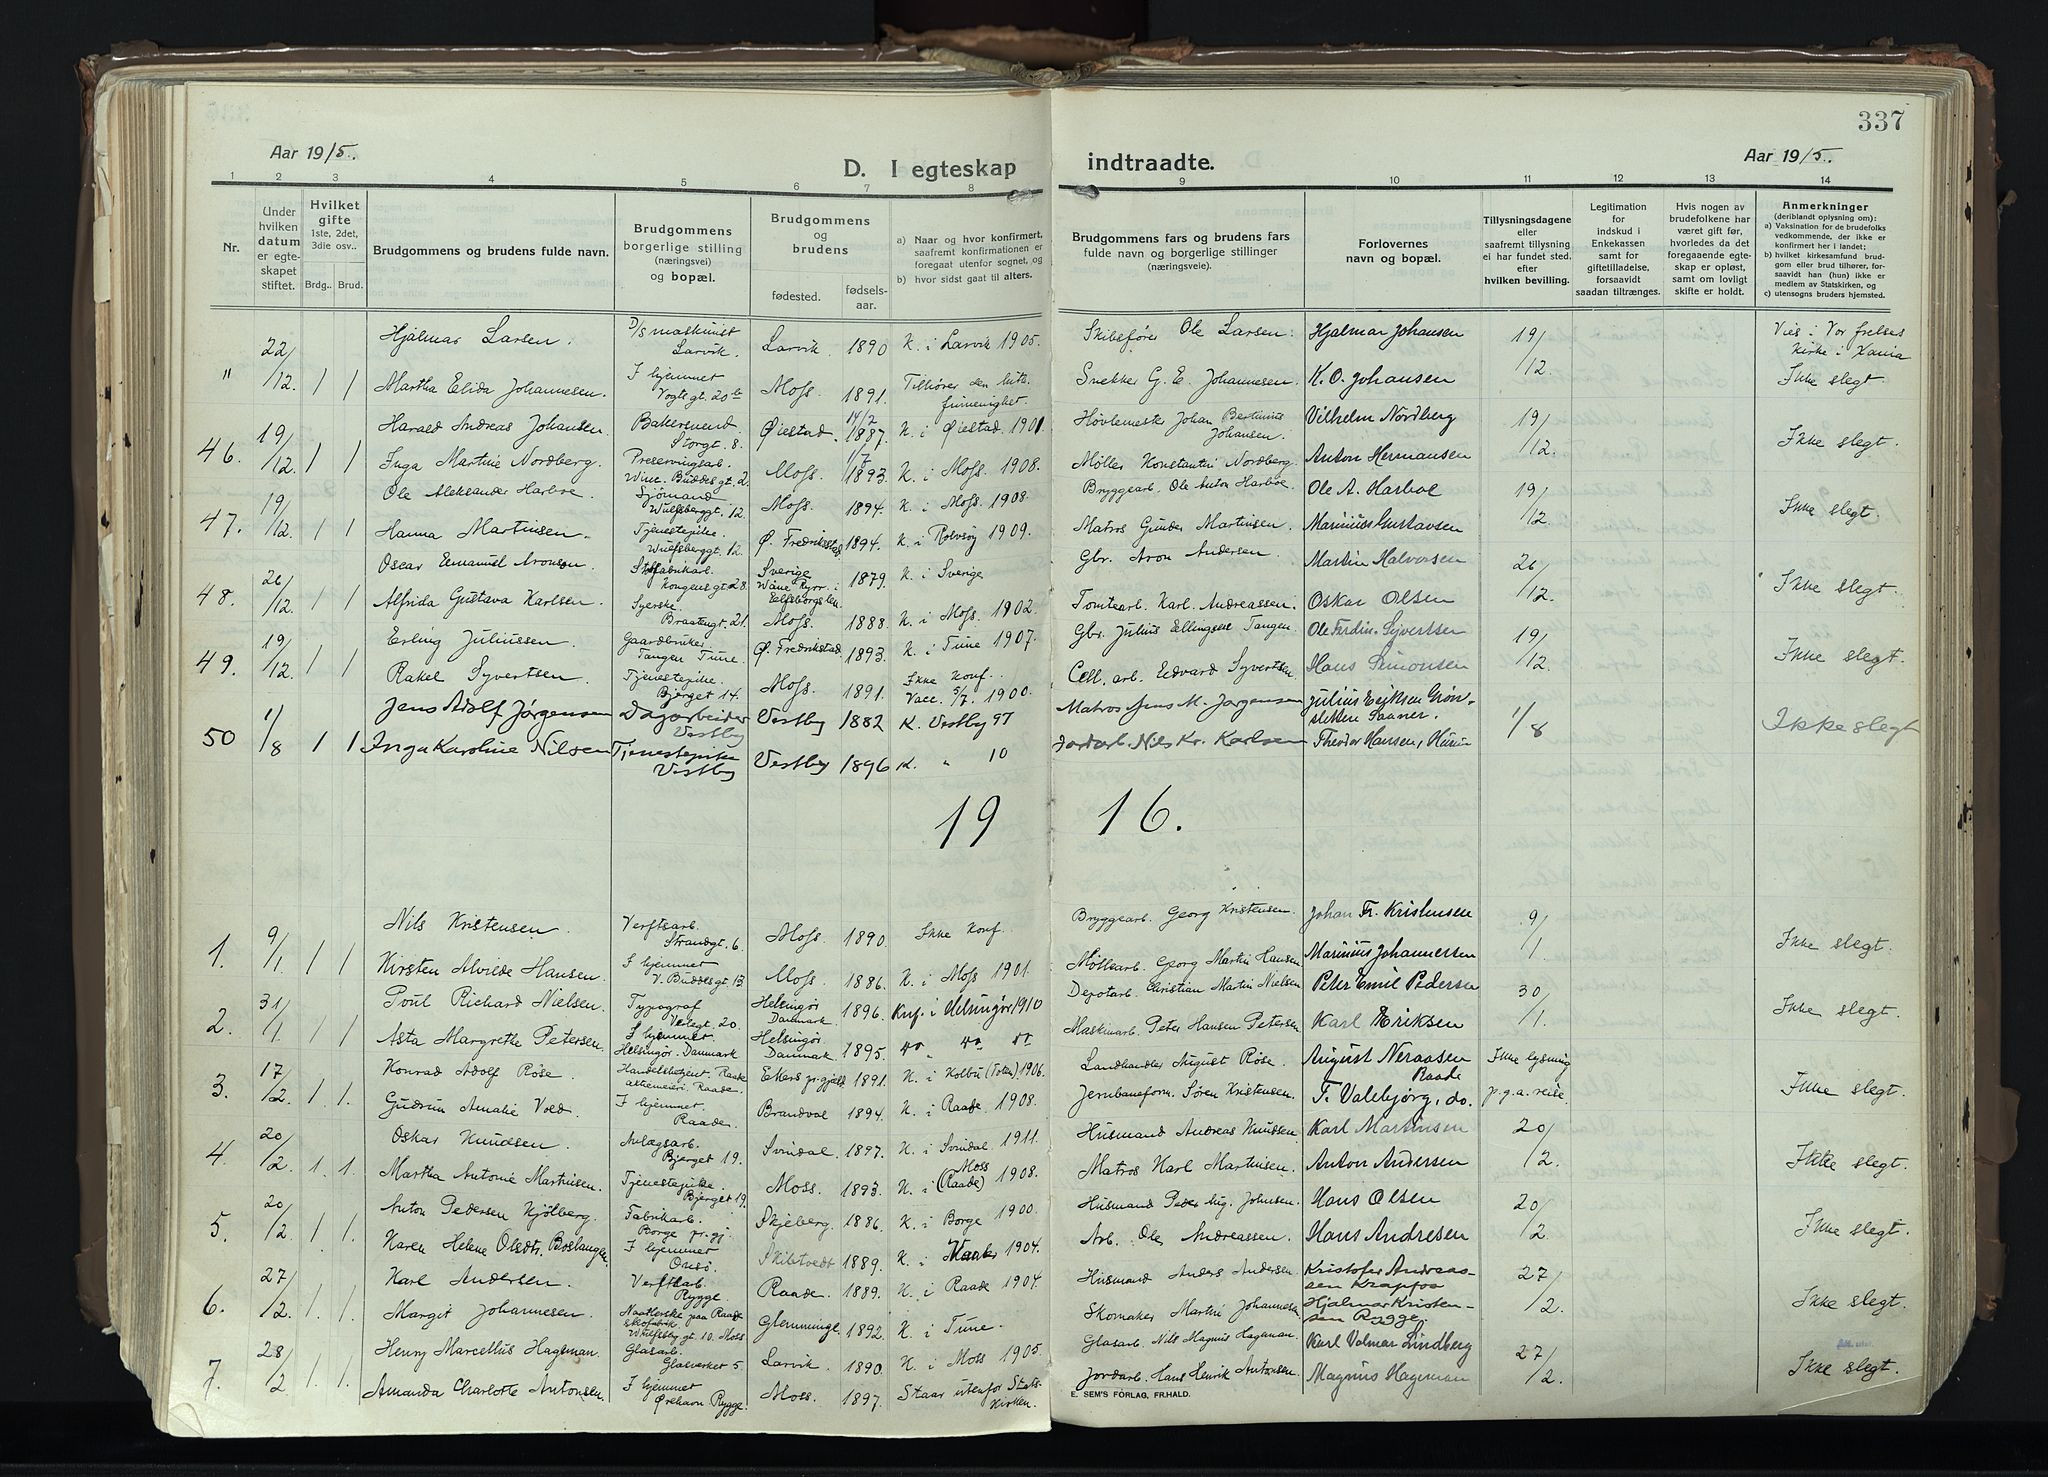 337
Aar 1915.
D. I egteskap indtraadte.
Aar 1915.
1 2 3 4 5 6 7 8 9 10 11 12 13 14
Nr.
Under hvilken datum er egteskapet stiftet.
Hvilket gifte 1ste, 2det, 3die osv..
Brdg.. Brud.
Brudgommens og brudens fulde navn.
Brudgommens borgerlige stilling (næringsvei) og bopæl.
Brudgommens og brudens
fødested.
fødselsaar.
a) Naar og hvor konfirmert, saafremt konfirmationen er foregaat utenfor sognet, og
b) hvor sidst gaat til alters.
Brudgommens fars og brudens fars fulde navn og borgerlige stillinger (næringsveie).
Forlovernes navn og bopæl.
Tillysningsdagene eller saafremt tillysning ei har fundet sted, efter hvilken bevilling.
Legitimation for indskud i Enkekassen samt for giftetilladelse, forsaavidt saadan tiltrænges.
Hvis nogen av brudefolkene har været gift før, hvorledes da det foregaaende egteskap er opløst, samt om lovligt skifte er holdt.
Anmerkninger (deriblandt oplysning om):
a) Vaksination for de brudefolks vedkommende, der ikke er konfirmert her i landet;
b) hvilket kirkesamfund brudgom eller brud tilhører, forsaavidt han (hun) ikke er medlem av Statskirken, og
c) utensogns bruders hjemsted.
" 22/12. 1 1 Hjalmar Larsen. D/s maskinist Larvik. Larvik. 1890 K. i Larvik 1905. Skibsfører Ole Larsen. Hjalmar Johansen 19/12. Vies i Vor frelsers Kirke i Xania
Martha Elida Johannesen. I hjemmet Vogts gt. 20 Moss. 1891. Tilhører den luth. frimenighet. Snekker G. E. Johannesen. K. O. Johansen Ikke slegt.
46. 19/12. 1 1 Harald Andreas Johansen. Bakersvend. Storgt. 8. Øiestad. 14/2 1887. K. i Øiestad. 1901. Høvlemester Johan Bertinius Johansen. Vilhelm Nordberg 19/12. Ikke slegt.
Inga Martine Nordberg. Preservingsarb. Wine. Buddes gt. 2. Moss. 1/7 1893 K. i Moss. 1908. Møller Konstantin Nordberg. Anton Hermansen
47. 19/12. 1 1 Ole Aleksander Harboe. Sjømand Wulfsberggt. 12. Moss. 1894. K. i Moss. 1908. Bryggearb. Ole Anton Harboe. Ole A. Harboe 19/12. Ikke slegt.
Hanna Martinsen. Tjenestepike. Wulfsberggt. 12. Ø. Fredrikstad 1894. K. i Rolvsøy 1909. Matros Gunder Martinsen. Marinius Gustavsen
48. 26/12. 1 1 Oscar Emanuel Aronson. Kongens gt. 28. Sverige Elfsborgs len. 1879. K. i Sverige Gbr. Aron Andersen. Martin Halvorsen 26/12. Ikke slegt.
Alfrida Gustava Karlsen. Syerske. Braatengt. 21. Moss. 1888. K. i Moss. 1902. Tomtearb. Karl Andreassen. Oskar Olsen
49. 19/12. 1 1 Erling Juliussen. Gaardbruker. Tangen Tune. Ø. Fredrikstad 1893. K. i Tune 1907. Gbr. Julius Ellingsen Tangen. Ole Ferdin. Syvertsen 19/12. Ikke slegt.
Rakel Syvertsen. Tjenestepike. Bjerget 14. Moss. 1891. Ikke konf. Vacc. 5/7. 1900. Cell. arb. Edvard Syvertsen. Hans Simonsen
50 1/8 1 1 Jens Adolf Jørgensen Dagarbeider Vestby Vestby 1882 K. Vestby 97 Matros Jens M. Jørgensen Julius Eriksen Grønsletten Saaner. 1/8 Ikke slegt
Inga Karoline Nilsen Tjenestepike Vestby Vestby 1896 K. " 10 Jordarb. Nils Kr. Karlsen Theodor Hansen,
19 16.
1. 9/1 1 1 Nils Kristensen. Verftsarb. Strandgt. 6. Moss. 1890. Ikke konf. Bryggearb. Georg Kristensen. Johan Fr. Kristensen 9/1. Ikke slegt.
Kirsten Alvilde Hansen. I hjemmet V. Buddes gt. 13 Moss. 1886. K. i Moss 1901. Møllearb. Georg Martin Hansen Marinius Johannessen
2. 31/1 1 1 Poul Richard Nielsen. Typograf Verlegt. 20. Helsingør Danmark. 1896. Knf. i Helsingør 1910 Depotarb. Christian Martin Nielsen Peter Emil Pedersen 30/1. Ikke slegt.
Asta Margrethe Petersen. I hjemmet. Helsingør. Danmark Helsingør. Danmark. 1895. do " do do Maskinarb. Peter Hansen Petersen Karl Eriksen
3. 17/2. 1 1. Konrad Adolf Røse. Handelsbetjent. Raade aktiemeieri. Raade. Ekers pr.gjeld 1891. K. i Kolbu (Toten). 1906. Landhandler August Røse. August Neraasen Raade Ikke lysning p.g.a. reise. Ikke slegt.
Gudrun Amalie Vold. I hjemmet. Raade. Brandval 1894. K. i Raade. 1908. Jernbaneform. Søren Kristensen. F. Valebjørg, do.
4. 20/2. 1. 1. Oskar Knudsen. Anlægsarb. Bjerget 19. Svindal. 1897. K. i Svindal 1911. Husmand Andreas Knudsen. Karl Martinsen 20/2. Ikke slegt.
Martha Antonie Martinsen. Tjenestepike. Bjerget 19. Moss. 1893. K. i Moss (Raade) 1908. Matros Karl Martinsen. Anton Andersen
5. 20/2. 1 1. Anton Pedersen Kjølberg. Fabrikarb. Borge pr.gj. Skjeberg. 1886. K. i Borge 1900. Husmand Peder Aug. Johnsen. Hans Olsen 20/2. Ikke slegt.
Karen Helene Olsdtr. Boslangen. I hjemmet Onsø. Skibtvedt 1889. K. i Vaaler 1904. Arb. Ole Andreassen. Hans Andresen
6. 27/2. 1. 1. Karl Andersen. Verftsarb. Rygge. Raade. 1889. K. i Raade 1904. Husmand Anders Andersen. Kristofer Andreassen Krapfos 27/2. Ikke slegt.
Margit Johannesen. Naatlerske paa Raade skofabrik. Wulfsby gt. 10. Moss Glemminge 1892. K. i Tune. Skomaker Martin Johannesen Hjalmar Kristensen Rygge.
7. 28/2 1. 1. Henry Marcellius Hageman. Glasarb. Glasverket 5 Larvik 1890. K. i Moss 1905. Glasarb. Nils Magnus Hageman. Karl Valmar Lindberg 27/2. Ikke slegt.
Amanda Charlotte Antonsen. I hjemmet Ørehavn Rygge. Moss. 1897. Staar utenfor Statskirken. Jordarb. Hans Henrik Antonsen. Magnus Hageman
E. SEM'S FORLAG, FR.HALD.